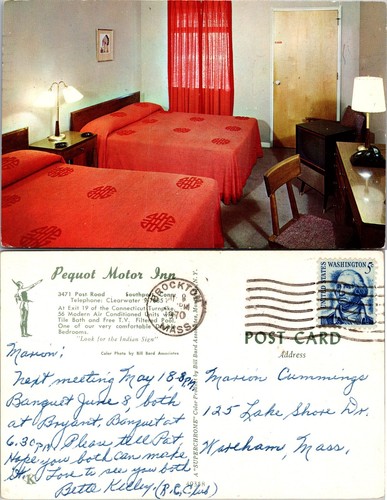 Pequot Motor Inn
3471 Post Road Southport, Conn.
Telephone: Clearwater
At Exit 19 of the Connecticut Turnpike
56 Modern Air Conditioned Units
Tile Bath and Free T.V. Filtered Pool
One of our very comfortable
Bedrooms.
"Look for the Indian Sign"
Color Photo by Bill Bard Associates
BROCKTON
MASS.
PM
1970
UNITED STATES
WASHINGTON 5c
POST CARD
Address
"SUPERCHROME" Color
Marion:
Next meeting May 18-8 PM
Banquet June 8, both
at Bryant, Banquet at
6:30 PM Please tell Pat.
Hope you both can make
it. Love to see you both
Bette Kelley (R.C. Club)
K
Marion Cummings
125 Lake Shore Dr.
Wareham, Mass.